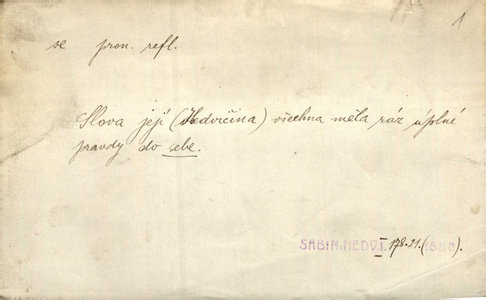 1
se pron. refl.
Slova její (Hedvičina) všechna měla ráz úplné
pravdy do sebe.
SABIN. HEDV. I. 178.21. (1858).